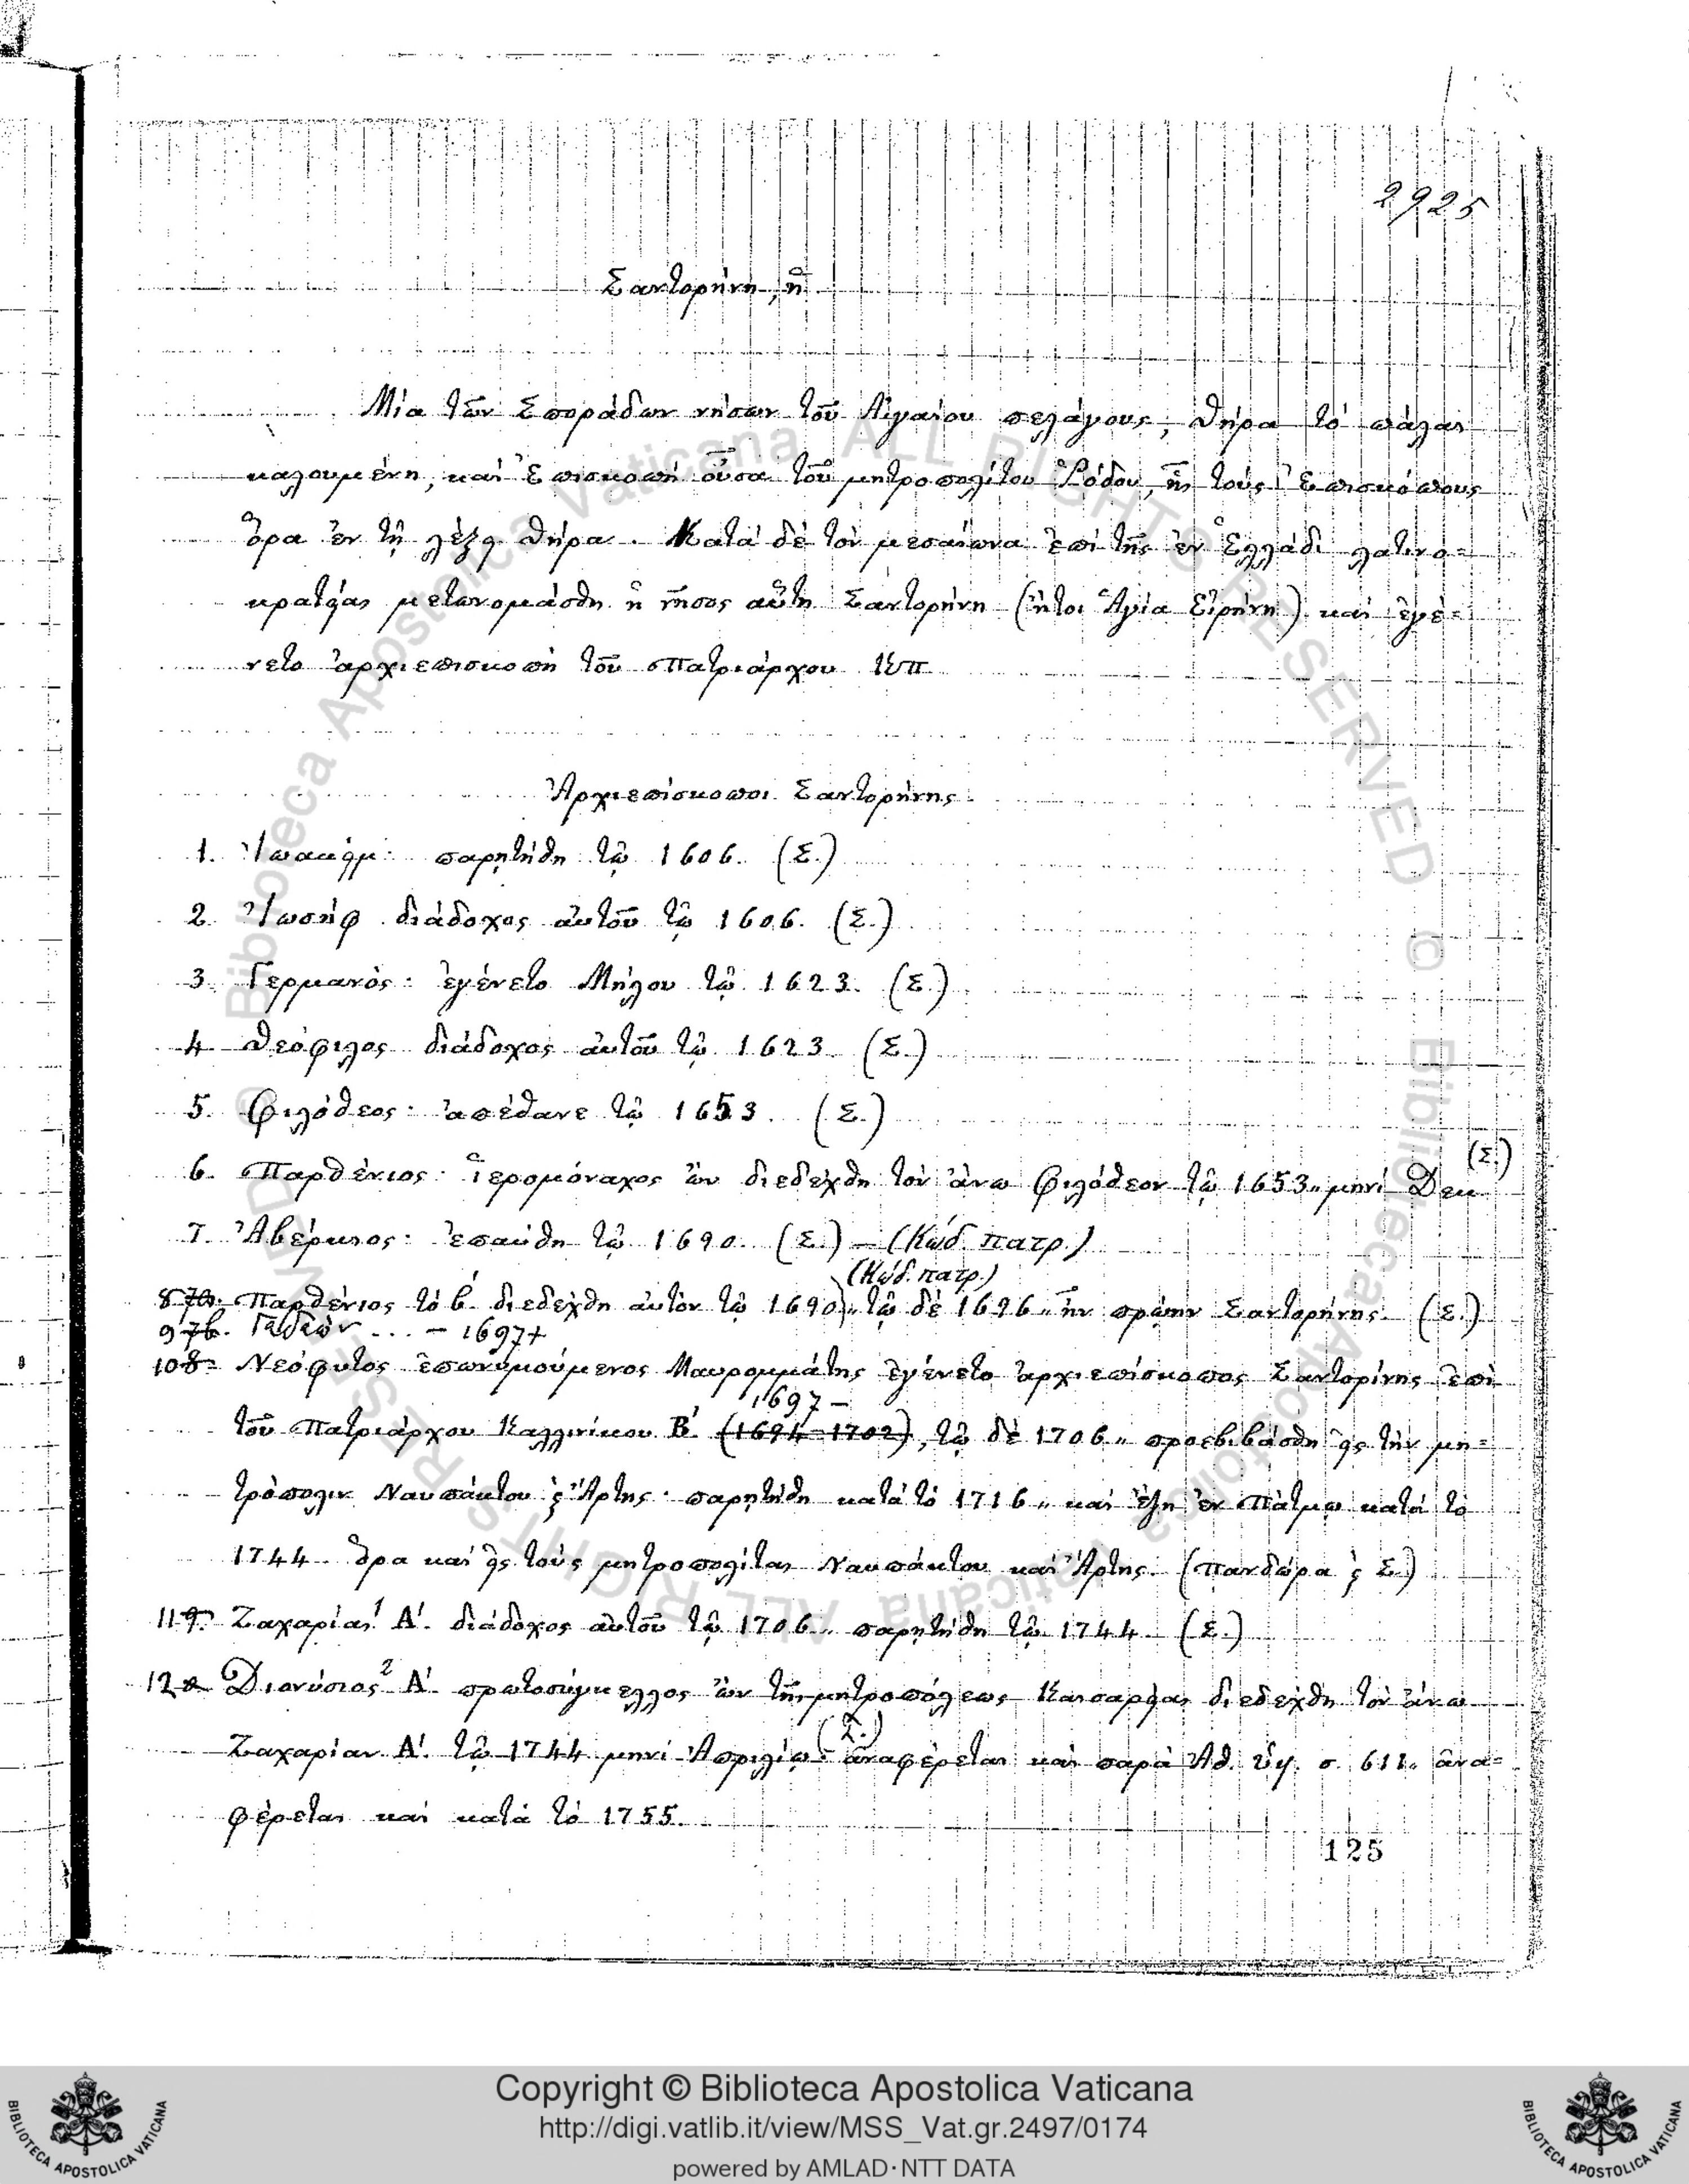 2925
Σαντορήνη, ἡ
Μία τῶν Σποράδων νήσων τοῦ Αἰγαίου πελάγους, Θήρα τὸ πάλαι
καλουμένη, καὶ Ἐπισκοπὴ οὖσα τοῦ μητροπολίτου Ῥόδου, ἧς τοὺς Ἐπισκόπους
ὅρα ἐν τῇ λέξει Θήρα. Κατὰ δὲ τὸν μεσαίωνα ἐπὶ τῆς ἐν Ἑλλάδι λατινο=
κρατείας μετωνομάσθη ἡ νῆσος αὕτη Σαντορήνη (ἤτοι Ἁγία Εἰρήνη) καὶ ἐγέ=
νετο ἀρχιεπισκοπὴ τοῦ Πατριάρχου Κπ
Ἀρχιεπίσκοποι Σαντορήνης
1. Ἰωακείμ· παρῃτήθη τῷ 1606. (Σ.)
2. Ἰωσὴφ διάδοχος αὐτοῦ τῷ 1606. (Σ.)
3. Γερμανὸς· ἐγένετο Μήλου τῷ 1623. (Σ.)
4 Θεόφιλος διάδοχος αὐτοῦ τῷ 1623 (Σ.)
5. Φιλόθεος· ἀπέθανε τῷ 1653. (Σ.)
6. Παρθένιος· ἱερομόναχος ὢν διεδέχθη τὸν ἄνω Φιλόθεον τῷ 1653„ μηνὶ Δεκ (Σ.)
7. Ἀβέρκιος· ἐπαύθη τῷ 1690. (Σ.) – (Κώδ. πατρ.)
(Κώδ. πατρ.)
8 7α. Παρθένιος τὸ β΄ διεδέχθη αὐτὸν τῷ 1690„ τῷ δὲ 1696„ ἦν πρώην Σαντορήνης. (Σ.)
9 7β. Γεδεὼν ... – 1697+
10 8. Νεόφυτος ἐπωνυμούμενος Μαυρομμάτης ἐγένετο ἀρχιεπίσκοπος Σαντορίνης ἐπὶ
1697 –
τοῦ Πατριάρχου Καλλινίκου Β΄ (1694–1702), τῷ δὲ 1706„ προεβιβάσθη εἰς τὴν μη=
τρόπολιν Ναυπάκτου ϗ Ἄρτης· παρῃτήθη κατὰ τὸ 1716„ καὶ ἔζη ἐν Πάτμῳ κατὰ τὸ
1744. ὅρα καὶ εἰς τοὺς μητροπολίτας Ναυπάκτου καὶ Ἄρτης. (Πανδώρα ϗ Σ.)
11 9. Ζαχαρίας 1 Α΄. διάδοχος αὐτοῦ τῷ 1706„ παρῃτήθη τῷ 1744 (Σ.)
12 Διονύσιος 2 Α΄ πρωτοσύγκελλος ὢν τῆς μητροπόλεως Καισαρείας διεδέχθη τὸν ἄνω
(Σ.)
Ζαχαρίαν Α΄. τῷ 1744 μηνὶ Ἀπριλίῳ· ἀναφέρεται καὶ παρὰ Ἀθ. Ὑψ. σ. 611. ἀνα=
φέρεται καὶ κατὰ τὸ 1755.
125
Copyright © Biblioteca Apostolica Vaticana
http://digi.vatlib.it/view/MSS_Vat.gr.2497/0174
powered by AMLAD·NTT DATA
BIBLIOTECA APOSTOLICA VATICANA
BIBLIOTECA APOSTOLICA VATICANA